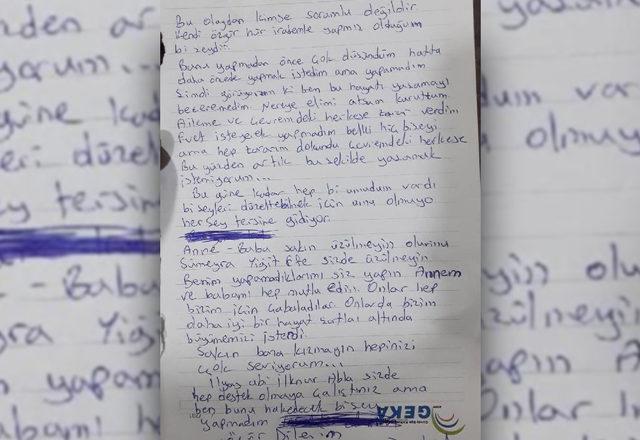 Bu olaydan kimse sorumlu değildir
kendi özgür hür irademle yapmış olduğum
bi şeydir.
Bunu yapmadan önce çok düşündüm hatta
daha önce yapmak istedim ama yapamadım
Şimdi görüyorum ki ben bu hayatı yaşamayı
beceremedim Nereye elimi atsam kuruttum
Aileme ve çevremdeki herkese zarar verdim
Evet isteyerek yapmadım belki hiç bişeyi
ama hep zararım dokundu çevremdeki herkese
Bu yüzden artık bu şekilde yaşamak
istemiyorum...
Bu güne kadar hep bi umudum vardı
bişeyleri düzeltebilmek için ama olmuyo
herşey tersine gidiyor
Anne - Baba sakın üzülmeyin olurmu
Sümeyra Yiğit Efe sizde üzülmeyin
Benim yapamadıklarımı siz yapın Annem
ve babamı hep mutlu edin. Onlar hep
bizim için çabaladılar. Onlarda bizim
daha iyi bir hayat şartları altında
büyümemizi istendi
Sakın bana kızmayın hepinizi
çok seviyorum...
İlyas abi İlknur Abla sizde
hep destek olmaya çalıştınız ama
ben bunu hakedecek bişey
yapmadım
özür Dilerim
GEKA